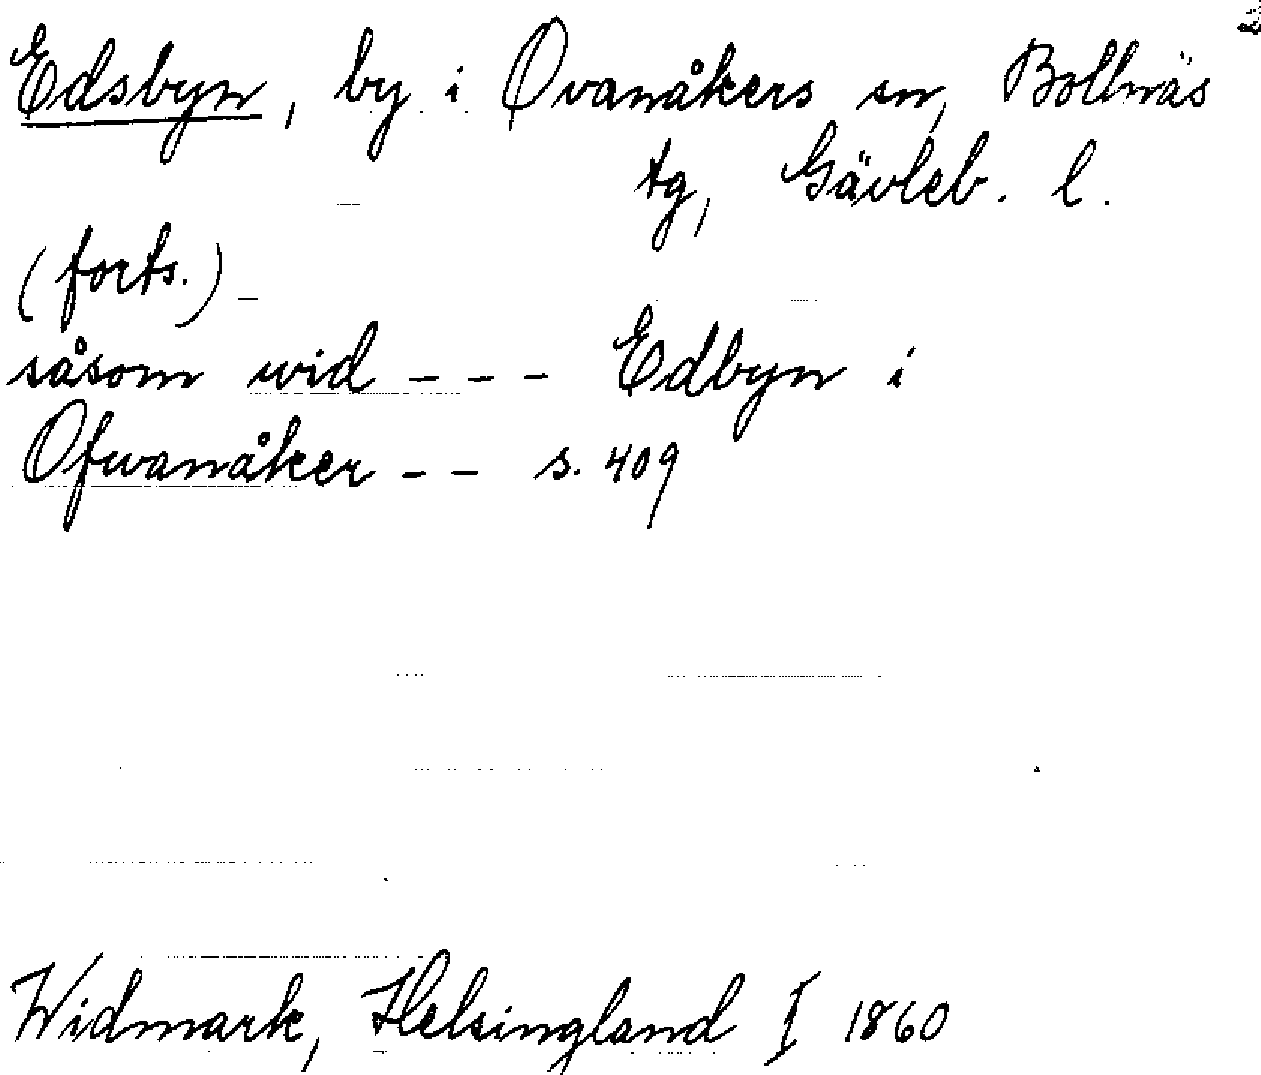 Edsbyn, by i Ovanåkers sn, Bollnäs
tg, Gävleb. l.
(forts.)
såsom wid - - - Edbyn i
Ofwanåker - - s. 409
Widmark, Helsingland I 1860